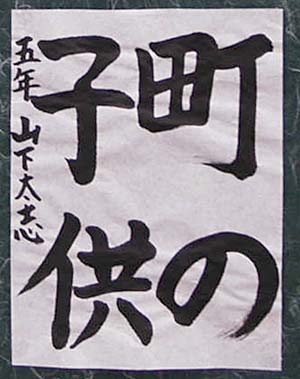 町の
子供
五年 山下太志